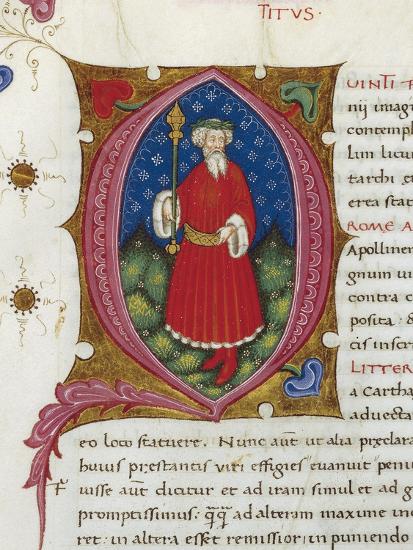 TITUS·
UINTI F
nij imag
contempl
lum licu
tarchi g
erea stat
ROME A
Apolliner
gnum ui
contra o
posita: &
cis inscri
LITTER
a Cartha
aduecta
eo loco statuere. Nunc aut̄ ut alia pręclara
huius pręstantis uiri effigies euanuit penu
uisse aut̄ dicitur et ad iram simul et ad g
promptissimus. q̄q̄ ad alteram maxime inc
ret: in altera esset remissior: in puniendo